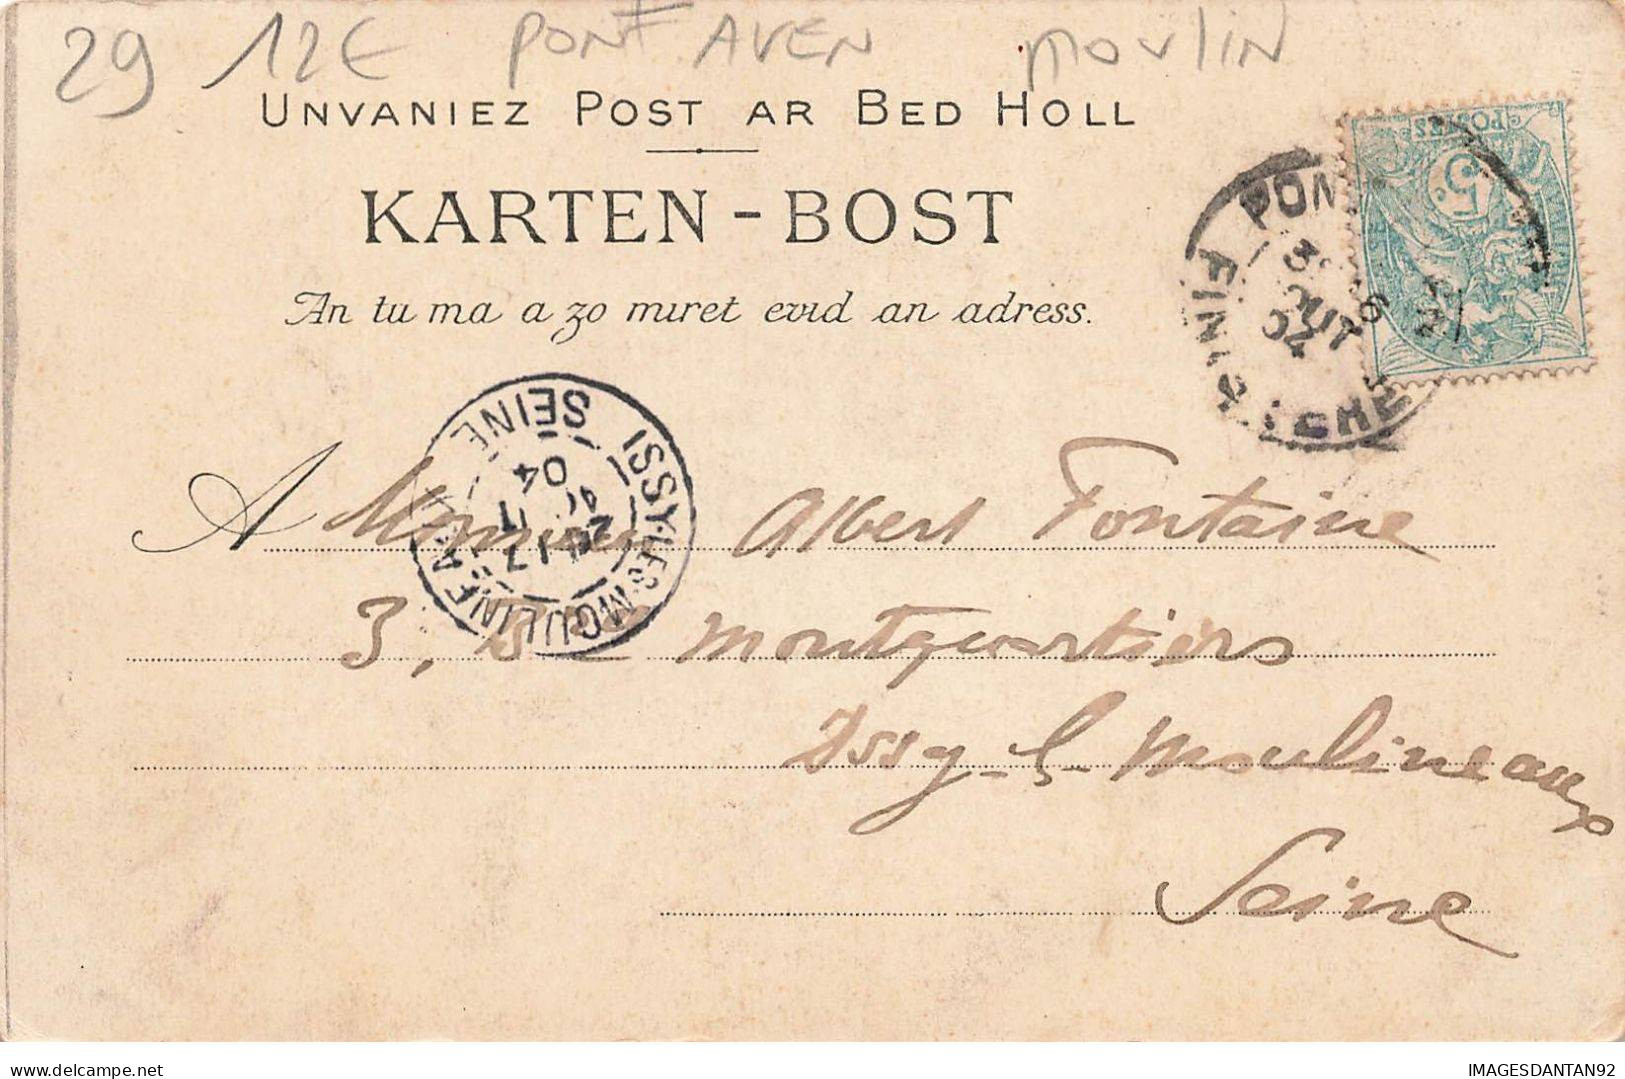 29 12€ PONT AVEN MOULIN
UNVANIEZ POST AR BED HOLL
KARTEN-BOST
An tu ma a zo miret evid an adress.
POSTES
5
FINISTERE
OUT
04
ISSY-LES-MOULINEAUX
SEINE
04
A Monsieur Albert Fontaine
3, Montquartiers
Issy-L-Moulineaux
Seine
IMAGESDANTAN92